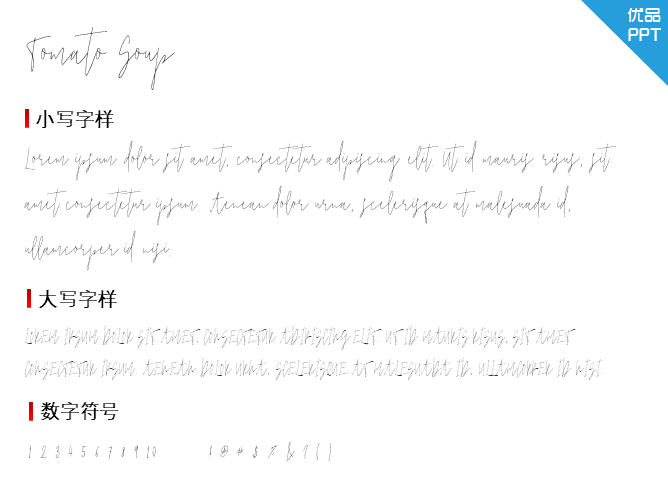 优品
PPT
Tomato Soup
小写字样
Lorem ipsum dolor sit amet, consectetur adipiscing elit. Ut id mauris risus, sit
amet consectetur ipsum. Aenean dolor urna, scelerisque at malesuada id,
ullamcorper id nisi.
大写字样
LOREM IPSUM DOLOR SIT AMET, CONSECTETUR ADIPISCING ELIT. UT ID MAURIS RISUS, SIT AMET
CONSECTETUR IPSUM. AENEAN DOLOR URNA, SCELERISQUE AT MALESUADA ID, ULLAMCORPER ID NISI.
数字符号
1 2 3 4 5 6 7 8 9 10 ! @ # $ % & ? ( )